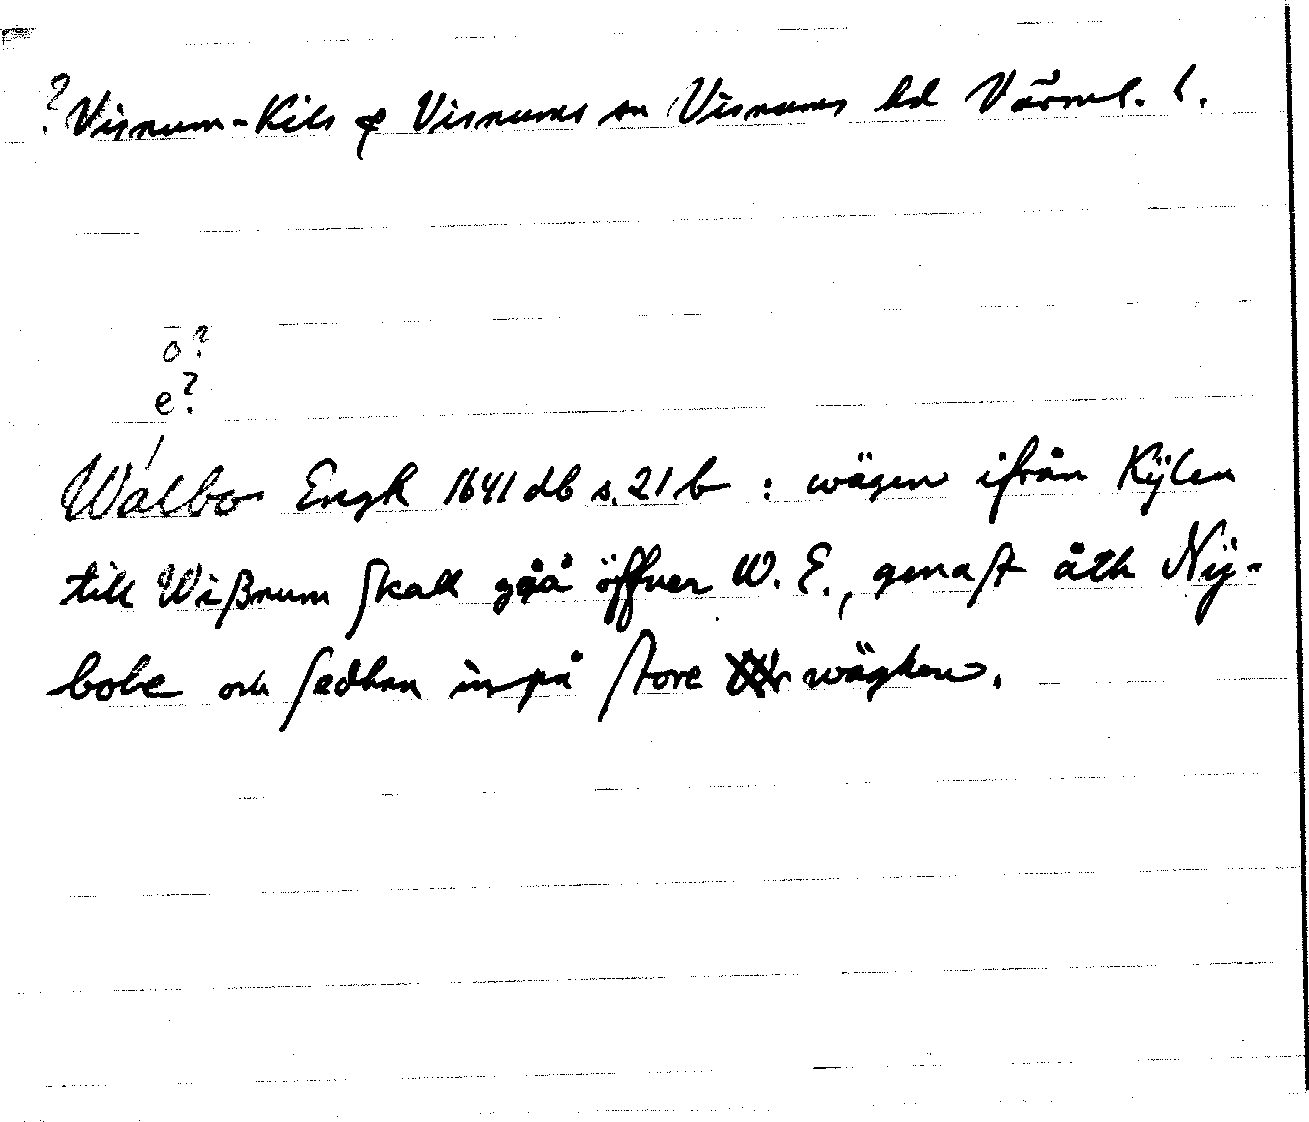 ? Visnum-Kils sn Visnums hd Värml. l.
o?
e?
Walbo Engh 1641 db s. 21 b : wägen ifrån Kÿlen
till Wißnum skall gåå öffuer W. E., genast åth Nÿ-
bole och sedhan in på store wäghen.